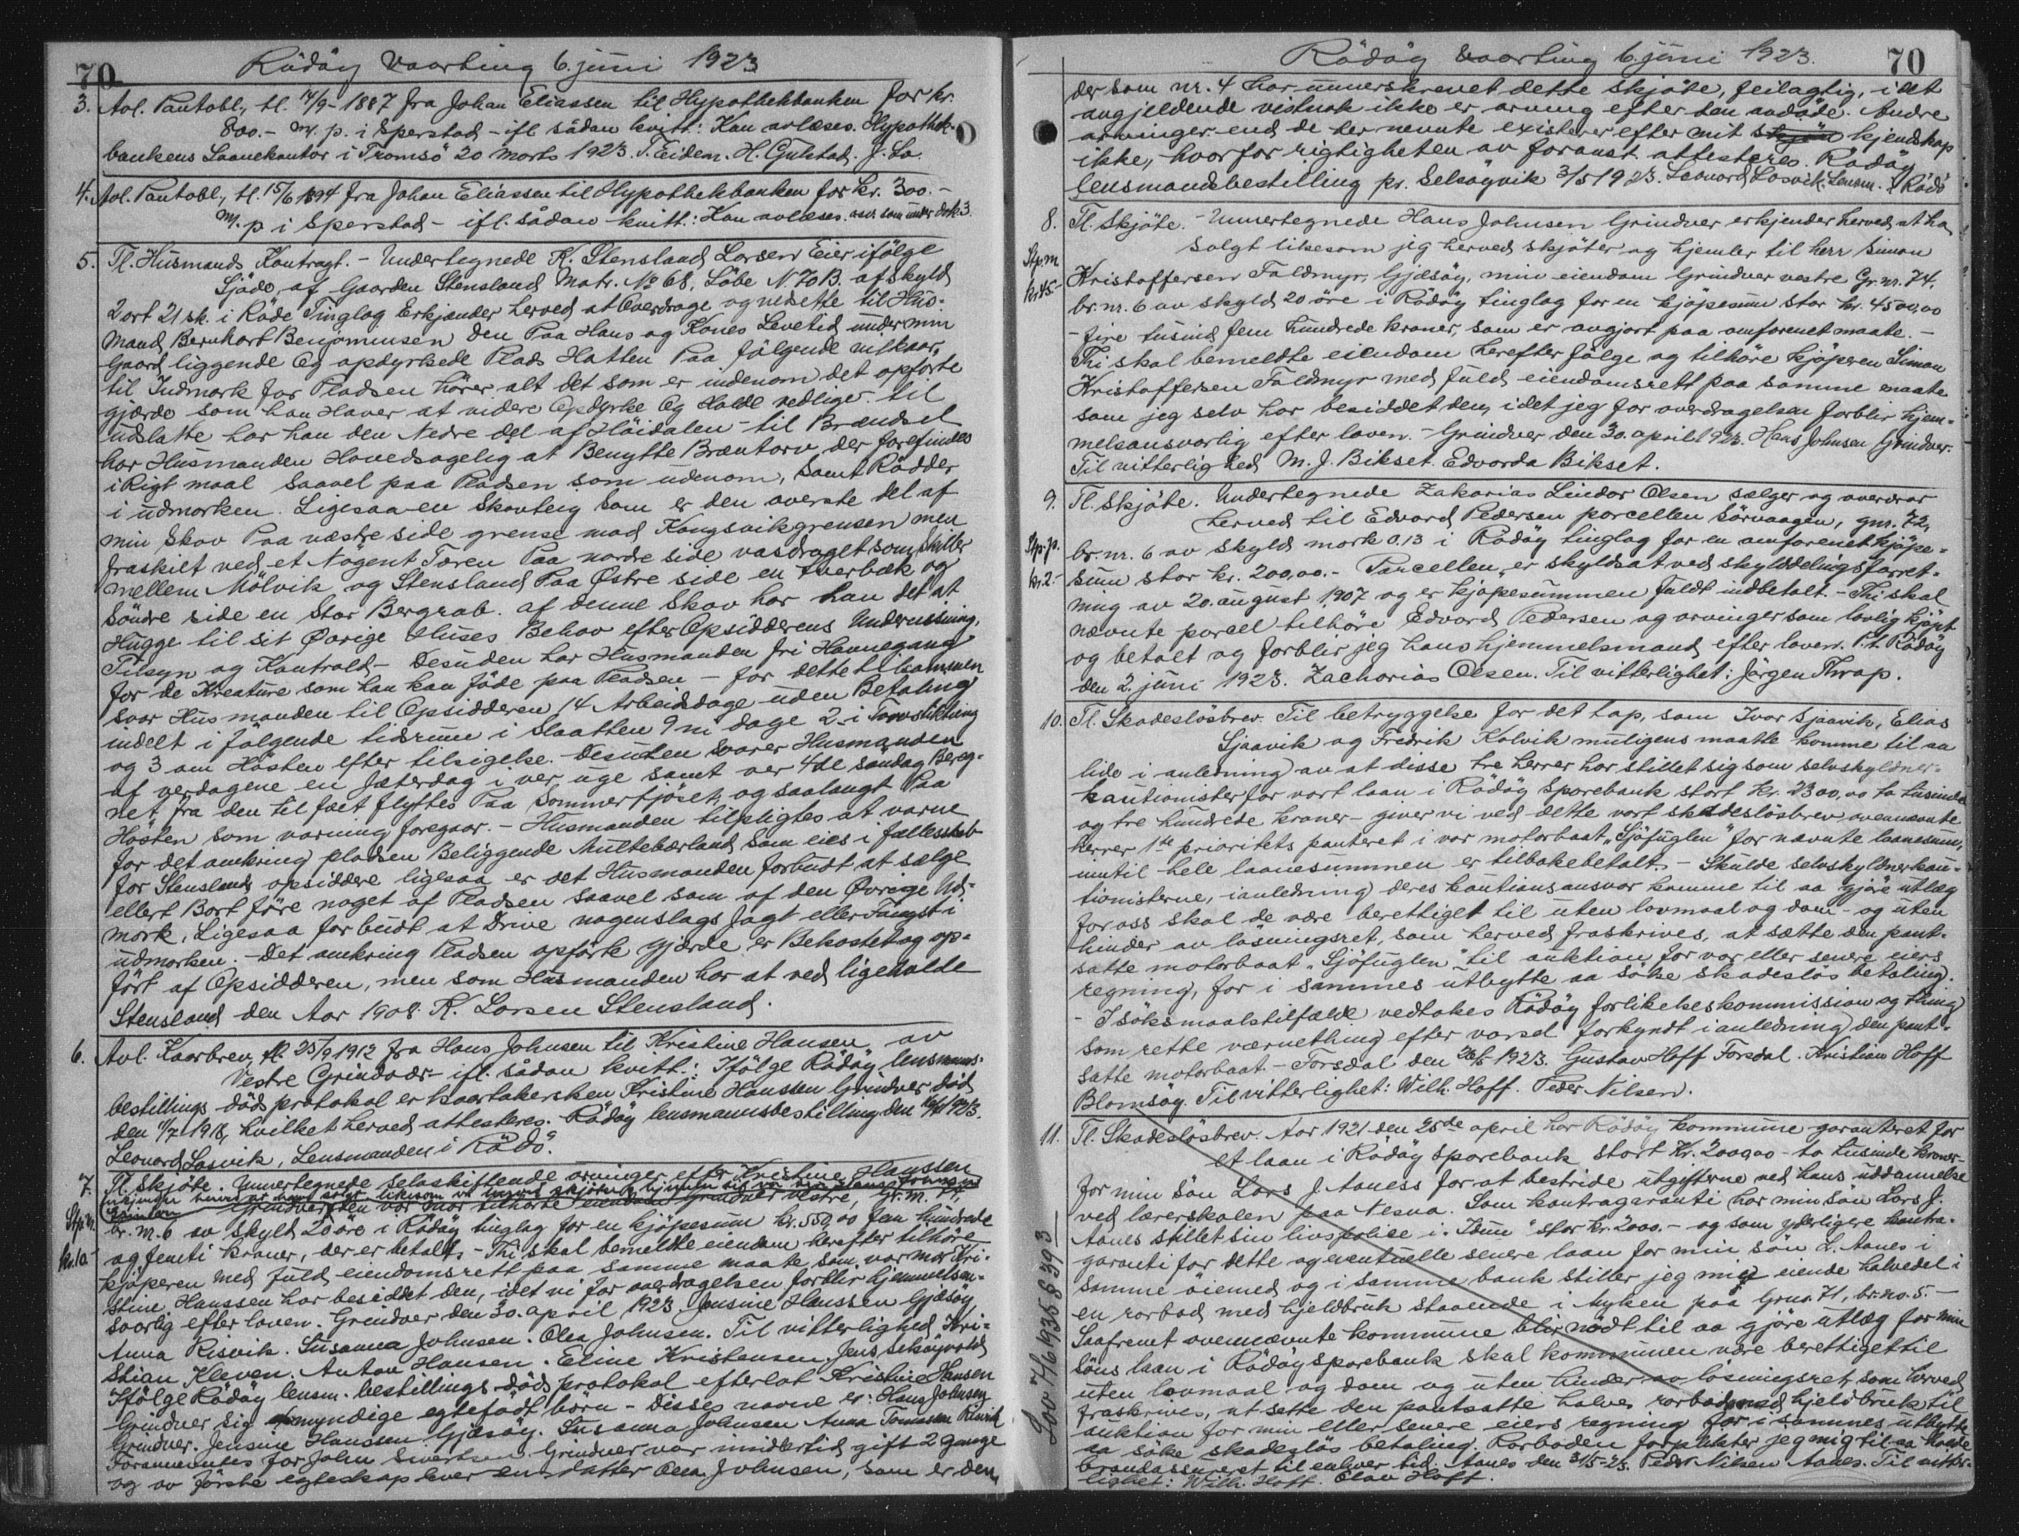 70
Rödöy vaarting 6. juni 1923
3. Avl. Pantobl., tl. 14/9-1887 fra Johan Eliassen til Hypothekbanken for kr.
800.- m. p. i Sperstad - ifl sådan kvitt: Kan avlæses. Hypothek-
bankens Laanekontor i Tromsö 20 marts 1923. T. Eidem. H. Gulstad. J. Lo.
4. Avl. Pantobl., tl. 15/6 1894 fra Johan Eliassen til Hypothekbanken for kr. 300.-
m. p i Sperstad - ifl. sådan kvitt: Kan avlæses. osv. som under dok. 3.
5. Tl. Husmands Kontragt. - Undertegnede K. Stensland Larsen Eier ifölge
Sjöde, af Gaarden Stensland Matr. No 68, Löbe N. 70 B. af skyld
2 ort 21 sk. i Röde Tinglag Erkjender herved at Overdrage og nedsette til Hus-
mand Bernhart Benjaminsen Den Paa Hans og Kones Levetid under min
Gaard liggende Og opdyrkede Plads Hatten Paa fölgende vilkaar,
til Indmark for Pladsen hörer alt det som er indenom det opförte
gjærde som han Haver at videre Opdyrke Og Holde vedlige til
udslatte har han den Nedre del af Höidalen - til Brændsel
har Husmanden Hovedsagelig at Benytte Bræntorv der forefindes
i Rigt maal saavel paa Pladsen som udenom, samt Rödder
i udmarken. Ligesaa en Skovteig som er den överste del af
min Skov Paa væstre side grense mod Kongsvikgrensen men
fraskilt ved et Nögent Toren Paa nordre side vasdraget som skiller
mellem Mölvik og Stensland Paa Østre side en tverbæk og
Söndre side en Stor Bergrab. af denne Skov har han det at
Hugge til sit Øvrige Huses Behov efter Opsidderens Undervisning,
Tilsyn og Kontrold - Desuden har Husmanden fri Havnegang
for de Kreature som han kan föde paa Pladsen - for dette
svar Husmanden til Opsidderen 14 Arbeidsdage uden Betaling
indelt i fölgende tidsrum i Slaatten 9 ni dage 2 i Torvstikning
og 3 om Hösten efter tilsigelse. Desuden svarer Husmanden
af verdagene en Jæterdag i ver uge samt ver 4de söndag Bereg-
net fra den til fæet flyttes Paa Sommerfjöset, og saalangt Paa
Hosten som varning foregaar. - Husmanden tilpligtes at varne
for det omkring pladsen Beliggende Multebærland som eies i fællesskab
for Stenslands opsiddere ligesaa er det Husmanden forbudt at sælge
ellert Bort före noget af Pladsen saavel som af den Øvrige Ud-
mark, Ligesaa forbudt at Drive nogenslags Jagt eller Fangst i
udmarken. - Det omkring Pladsen opförte gjærde er Bekostet og op-
fört af Opsidderen, men som Husmanden har at ved ligeholde
Stensland den Aar 1908. K. Larsen Stensland.
6. Avl. Kaarbrev, tl. 25/9 1912 fra Hans Johnsen til Kristine Hansen av
Vestre Grindvær - ifl. sådan kvitt.: Ifölge Rödöy lensmans-
bestillings dödsprotokol er kaartakersken Kristine Hanssen Grindver död
den 11/7 1918, hvilket herved attesteres. Rödöy lensmannsbestilling den 1923.
Leonard Losvik, Lensmanden i Rödö.
7. Tl. Skjöte. Undertegnede selvskiftende arvinger efter Kristine Hanssen
Grindver vestre, Gr. nr. 74,
Stp. m. br. nr. 6 av skyld 20 öre i Rödöy tinglag for en kjöpesum kr. 550,00 fem hundrede
kr. 10- og femti kroner, der er betalt. - Thi skal bemeldte eiendom herefter tilhöre
kjöperen med fuld eiendomsrett paa samme maate som vor mor Kri-
stine Hanssen har besiddet den, idet vi for overdragelsen forblir hjemmelsan-
svarlig efter loven. Grindver den 30. april 1923 Jensine Hanssen Gjæsöy
Anna Risvik. Susanna Johnsen. Olea Johnsen. Til vitterlighed Kri-
stian Kleven. Anton Hansen. Eline Kristensen. Jens Selsöyvold
Ifölge Rödöy lensm. bestillings dödsprotokol efterlot Kristine Hansen
Grindver sig myndige egtefödt börn - Disses navne er: Hans Johnsen
Grindver. Jensine Hanssen Gjæsöy. Susanna Johnsen Anna Tomassen Risvik
Forannævntes far John Sivertsen Grindver var imidlertid gift 2 gange
og av förste egteskap lever en datter Olea Johnsen, som er den,
Rödöy vaarting 6. juni 1923.
70
der som nr. 4 har underskrevet dette skjöte, feilagtig, idet
angjeldende vistnok ikke er arving efter den avdöde. Andre
arvinger end de her nevnte existerer efter mit kjendskap
ikke, hvorfor rigtigheten av foranst. attesteres. Rödöy
lensmandsbestilling pr. Selsöyvik 3/5 1923. Leonard Losvik, Lensm. i Rödö
8. Tl. Skjöte. - Unnertegnede Hans Johnsen Grindver erkjender herved at ha
solgt likesom jeg herved skjöter og hjemler til herr Simon
Stp. m Kristoffersen Faldmyr, Gjæsöy, min eiendom Grindver vestre Gr. nr. 74,
kr. 45- br. nr. 6 av skyld 20 öre i Rödöy tinglag for en kjöpesum stor kr. 4500,00
- fire tusind fem hundrede kroner, som er avgjort paa omforenet maate. -
Thi skal bemeldte eiendom herefter fölge og tilhöre kjöperen Simon
Kristoffersen Faldmyr med fuld eiendomsrett paa samme maate
som jeg selv har besiddet den, idet jeg for overdragelsen forblir hjem-
melsansvarlig efter loven. - Grindver den 30. april 1923. Hans Johnsen Grindver.
Til vitterlighed M. J. Bikset. Edvarda Bikset.
9. Tl. Skjöte. Undertegnede Zakarias Lindor Olsen sælger og overdrar
herved til Edvard Pedersen porcellen Sörvaagen, gnr. 72,
Stp. p. br. nr. 6 av skyld mark 0.13 i Rödöy tinglag for en omforenet kjöpe-
kr. 2.- sum stor kr. 200,00. - Parcellen er skyldsat ved skylddelingsforret-
ning av 20. august 1907 og er kjöpesummen fuldt indbetalt. - Thi skal
nævnte parcel tilhöre Edvard Pedersen og arvinger som lovlig kjöpt
og betalt og forblir jeg hans hjemmelsmand efter loven. P.t. Rödöy
den 2. juni 1923. Zacharias Olsen. Til vitterlighet: Jörgen Thrap.
10. Tl. Skadeslösbrev. Til betryggelse for det tap, som Ivar Sjaavik, Elias
Sjaavik og Fredrik Kolvik muligens maatte komme til aa
lide i anledning av at disse tre herrer har stillet sig som selvskyldner-
kautionister for vort laan i Rödöy sparebank stort kr. 2300,00 to tusinde
og tre hundrede kroner - giver vi ved dette vort skadeslösbrev ovennævnte
herrer 1ste prioritets panteret i vor motorbaat „Sjöfuglen" for nævnte laanesum,
inntil hele laanesummen er tilbakebetalt. - Skulde selvskyldnerkau-
tionisterne, i anledning deres kautionsansvar komme til aa gjöre utlæg
for oss skal de være berettiget til uten lovmaal og dom - og uten
hinder av lösningsret, som herved fraskrives, at sætte den pant-
satte motorbaat „Sjöfuglen" til auktion for vor eller senere eiers
regning, for i sammes utbytte aa söke skadeslös betaling.
- I söksmaalstilfælde vedtakes Rödöy forlikelseskommission og thing
som rette værnething efter varsel forkyndt i anledning den pant-
satte motorbaat. - Forsdal den 26/5 1923. Gustav Hoff Forsdal. Kristian Hoff
Blomsöy. Til vitterlighet: Wilh. Hoff. Peder Nilsen.
11. Tl. Skadeslösbrev. Aar 1921 den 25de april har Rödöy kommune garanteret for
et laan i Rödöy sparebank stort Kr. 2000,00 - to tusinde kroner -
for min sön Lars J. Aaness for at bestride utgifterne ved hans uddannelse
ved lærerskolen paa Nesna. Som kontragaranti har min sön Lars J.
Aanes stillet sin livspolise i „Idun" stor kr. 2000.- og som yderligere kontra-
garanti for dette og eventuelle senere laan for min sön L. Aanes i
samme öiemed og i samme bank stiller jeg min eiende halvedel i
en rorbod med hjeldbruk staaende i Myken paa Grno. 71, br. no. 5. -
Saafremt ovennævnte kommune blir nödt til aa gjöre utlæg for min
söns laan i Rödöy sparebank skal kommunen være berettiget til
uten lovmaal og dom og uten hinder av lösningsret som herved
fraskrives, at sette den pantsatte halve rorbod med hjeldbruk til
auktion for min eller senere eiers regning for i sammes utbytte
aa söke skadeslös betaling. Rorboden forplikter jeg mig til aa holde
brandassurert til enhver tid. Aanes den 31/5-23. Peder Nilsen Aanes. Til vitter-
lighet: Wilh. Hoff. Olav Hoff.